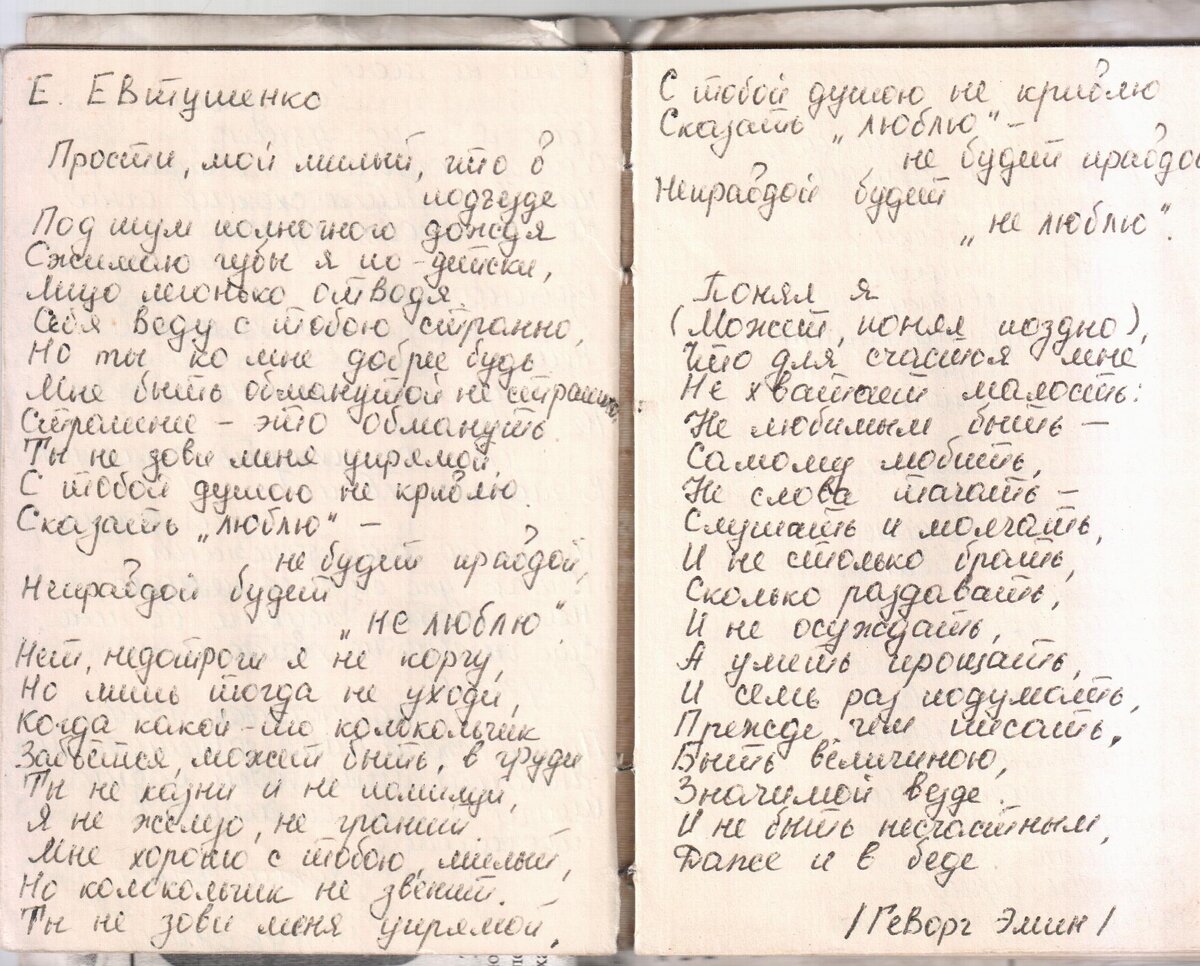 Е. Евтушенко
Прости, мой милый, что в
подъезде
Под шум полночного дождя
Сжимаю губы я по-детски,
Лицо легонько отводя.
Себя веду с тобою странно,
Но ты ко мне добрее будь
Мне быть обманутой не страшно,
Страшнее – это обмануть.
Ты не зови меня упрямой,
С тобой душою не кривлю.
Сказать „люблю" –
не будет правдой,
Неправдой будет
„не люблю".
Нет, недотрог я не корчу,
Но лишь тогда не уходи,
Когда какой-то колокольчик
Забьётся, может быть, в груди
Ты не казни и не помилуй,
Я не железо, не гранит.
Мне хорошо с тобою, милый,
Но колокольчик не звенит.
Ты не зови меня упрямой,
С тобой душою не кривлю
Сказать „люблю" –
не будет правдой
Неправдой будет
„не люблю".
Понял я
(Может, понял поздно),
Что для счастья мне
Не хватает малость:
Не любимым быть –
Самому любить,
Не слова тачать –
Слушать и молчать,
И не столько брать,
Сколько раздавать,
И не осуждать,
А уметь прощать,
И семь раз подумать,
Прежде, чем писать,
Быть величиною,
Значимой везде.
И не быть несчастным,
Даже и в беде.
/Геворг Эмин/